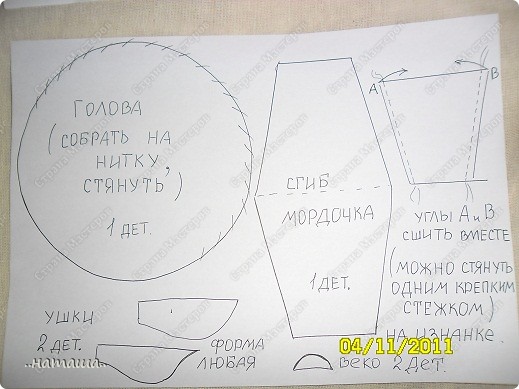 ГОЛОВА
(СОБРАТЬ НА
НИТКУ,
СТЯНУТЬ)
1 ДЕТ.
СГИБ
МОРДОЧКА
1 ДЕТ.
А
В
УГЛЫ А и В
СШИТЬ ВМЕСТЕ
(МОЖНО СТЯНУТЬ
ОДНИМ КРЕПКИМ
СТЕЖКОМ)
НА ИЗНАНКЕ.
УШКИ
2 ДЕТ.
ФОРМА
ЛЮБАЯ
ВЕКО 2 ДЕТ.
04/11/2011
..наташа..
Страна Мастеров